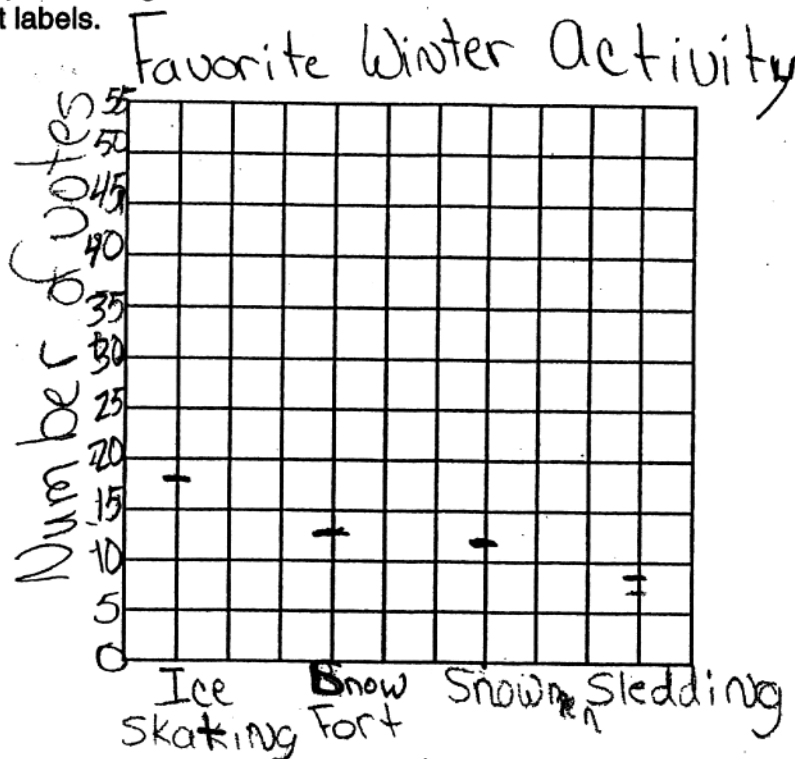 t labels.
Favorite Winter Activity
Number of votes
55
50
45
40
35
30
25
20
15
10
5
0
Ice Skating
Snow Fort
Snowmen
Sledding